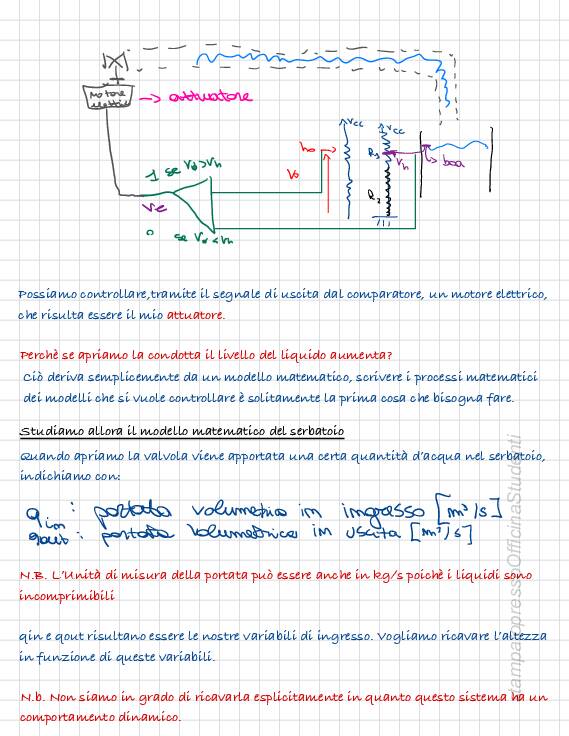 Motore
elettrico
→ attuatore
Vcc
Vcc
h0
R1
1 se V0>Vh
V0
Vh
boa
R2
Vc
0 se V0<Vh
Possiamo controllare,tramite il segnale di uscita dal comparatore, un motore elettrico,
che risulta essere il mio attuatore.
Perchè se apriamo la condotta il livello del liquido aumenta?
Ciò deriva semplicemente da un modello matematico, scrivere i processi matematici
dei modelli che si vuole controllare è solitamente la prima cosa che bisogna fare.
Studiamo allora il modello matematico del serbatoio
Quando apriamo la valvola viene apportata una certa quantità d'acqua nel serbatoio,
indichiamo con:
qin : portata volumetrica in ingresso [m³/s]
qout : portata volumetrica in uscita [m³/s]
N.B. L'Unità di misura della portata può essere anche in kg/s poichè i liquidi sono
incomprimibili
qin e qout risultano essere le nostre variabili di ingresso. Vogliamo ricavare l'altezza
in funzione di queste variabili.
N.b. Non siamo in grado di ricavarla esplicitamente in quanto questo sistema ha un
comportamento dinamico.
StampatopressoOfficinaStudenti